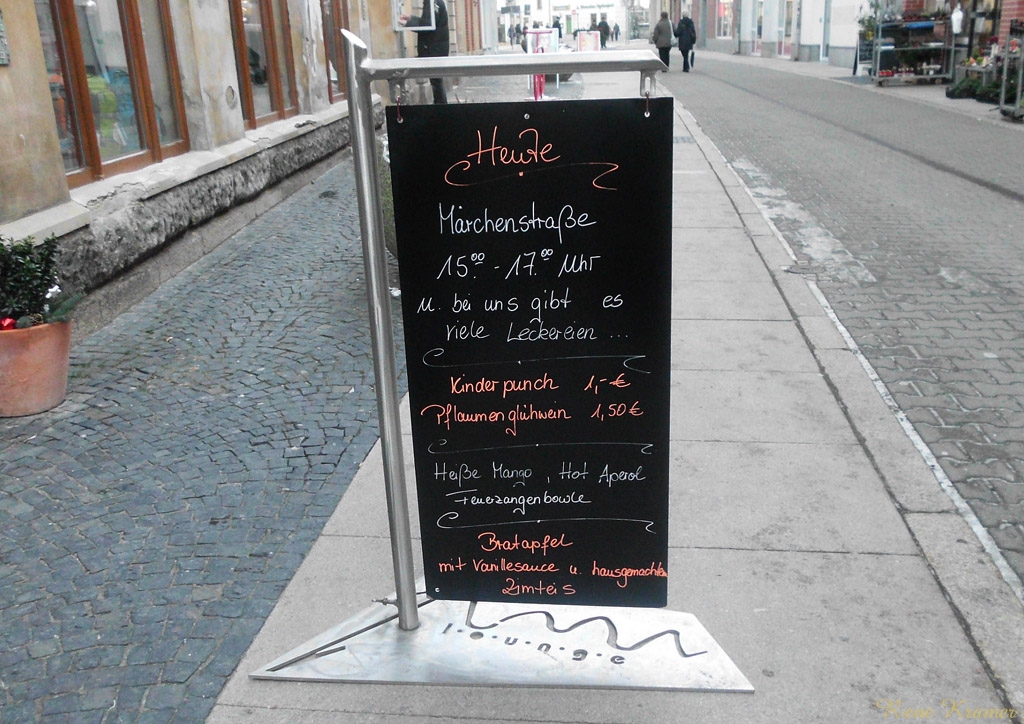 Heute
Märchenstraße
15.00 - 17.00 Uhr
u. bei uns gibt es
viele Leckereien ...
Kinderpunch 1,- €
Pflaumenglühwein 1,50 €
Heiße Mango, Hot Aperol
Feuerzangenbowle
Bratapfel
mit Vanillesauce u. hausgemachten
Zimteis
lounge